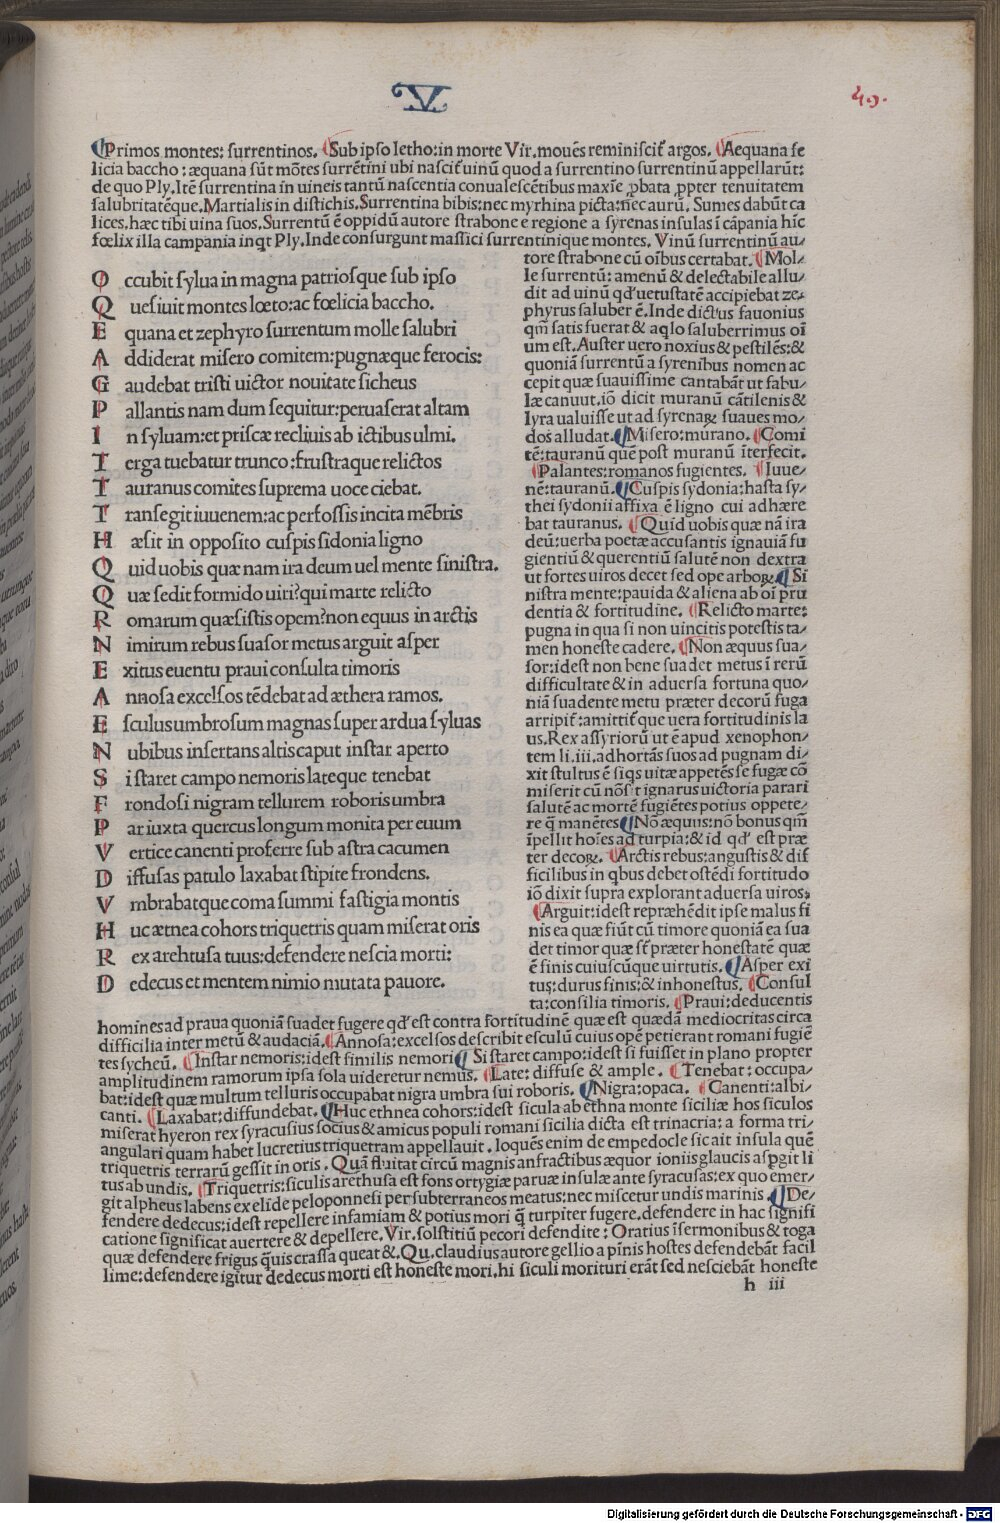 V
49.
Primos montes: surrentinos. Sub ipso letho: in morte Vir. mouẽs reminiscit᷑ argos. Aequana fe
licia baccho: æquana sũt mõtes surrẽtini ubi nascit᷑ uinũ quod a surrentino surrentinũ appellarũt:
de quo Ply. Itẽ surrentina in uineis tantũ nascentia conualescẽtibus maxĩe ꝓbata ꝓpter tenuitatem
salubritatẽque. Martialis in distichis. Surrentina bibis: nec myrhina picta: nec aurũ. Sumes dabũt ca
lices. hæc tibi uina suos. Surrentũ ẽ oppidũ autore strabone e regione a syrenas insulas ĩ cãpania hĩc
fœlix illa campania inqt Ply. Inde consurgunt massici surrentinique montes. Vinũ surrentinũ au-
O ccubit sylua in magna patriosque sub ipso
Q uesiuit montes lœto: ac fœlicia baccho.
E quana et zephyro surrentum molle salubri
A ddiderat misero comitem: pugnæque ferocis:
G audebat tristi uictor nouitate sicheus
P allantis nam dum sequitur: peruaserat altam
I n syluam: et priscæ recliuis ab ictibus ulmi.
T erga tuebatur trunco: frustraque relictos
T auranus comites suprema uoce ciebat.
T ransegit iuuenem: ac perfossis incita mẽbris
H æsit in opposito cuspis sidonia ligno
Q uid uobis quæ nam ira deum uel mente sinistra.
Q uæ sedit formido uiri? qui marte relicto
R omarum quæsistis opem? non equus in arctis
N imirum rebus suasor metus arguit asper
E xitus euentu praui consulta timoris
A nnosa excelsos tẽdebat ad æthera ramos.
E sculus umbrosum magnas super ardua syluas
N ubibus insertans altis caput instar aperto
S i staret campo nemoris lateque tenebat
F rondosi nigram tellurem roboris umbra
P ar iuxta quercus longum monita per euum
V ertice canenti proferre sub astra cacumen
D iffusas patulo laxabat stipite frondens.
V mbrabatque coma summi fastigia montis
H uc ætnea cohors triquetris quam miserat oris
R ex arehtusa tuus: defendere nescia morti:
D edecus et mentem nimio mutata pauore.
tore strabone cũ oĩbus certabat. Mol-
le surrentũ: amenũ & delectabile allu-
dit ad uinũ qd' uetustatẽ accipiebat ze-
phyrus saluber ẽ. Inde dictus fauonius
qm̃ satis fuerat & aqlo saluberrimus oĩ
um est. Auster uero noxius & pestilẽs: &
quoniã surrentũ a syrenibus nomen ac
cepit quæ suauissime cantabãt ut fabu-
læ canuut. iõ dicit muranũ cãtilenis &
lyra ualuisse ut ad syrenaꝝ suaues mo-
dos alludat. Misero: murano. Comi
tẽ: tauranũ quẽ post muranũ ĩterfecit.
Palantes: romanos fugientes. Iuue-
nẽ: tauranũ. Cuspis sydonia: hasta sy-
thei sydonii affixa ẽ ligno cui adhære
bat tauranus. Quid uobis quæ nã ira
deũ: uerba poetæ accusantis ignauiã fu
gientiũ & querentiũ salutẽ non dextra
ut fortes uiros decet sed ope arboꝝ. Si
nistra mente: pauida & aliena ab oĩ pru
dentia & fortitudine. Relicto marte:
pugna in qua si non uincitis potestis ta-
men honeste cadere. Non æquus sua-
sor: idest non bene suadet metus ĩ rerũ
difficultate & in aduersa fortuna quo-
niã suadente metu præter decorũ fuga
arripit᷑: amittit᷑ que uera fortitudinis la
us. Rex assyriorũ ut ẽ apud xenophon-
tem li. iii. adhortãs suos ad pugnam di-
xit stultus ẽ siqs uitæ appetẽs se fugæ cõ
miserit cũ nõsit ignarus uictoria parari
salutẽ ac mortẽ fugiẽtes potius oppete-
re q̃ manẽtes Nõ æquus: nõ bonus qm̃
ĩpellit hoĩes ad turpia: & id qd' est præ
ter decoꝝ. Arctis rebus: angustis & dif
ficilibus in qbus debet ostẽdi fortitudo
iõ dixit supra explorant aduersa uiros:
Arguit: idest repræhẽdit ipse malus fi
nis ea quæ fiũt cũ timore quoniã ea sua
det timor quæ sũt præter honestatẽ quæ
ẽ finis cuiuscũque uirtutis. Asper exi
tus: durus finis: & inhonestus. Consul
ta: consilia timoris. Praui: deducentis
homines ad praua quoniã suadet fugere qd' est contra fortitudinẽ quæ est quædã mediocritas circa
difficilia inter metũ & audaciã. Annosa: excelsos describit esculũ cuius opẽ petierant romani fugiẽ
tes sycheũ. Instar nemoris: idest similis nemori Si staret campo: idest si fuisset in plano propter
amplitudinem ramorum ipsa sola uideretur nemus. Late: diffuse & ample. Tenebat: occupa-
bat: idest quæ multum telluris occupabat nigra umbra sui roboris. Nigra: opaca. Canenti: albi-
canti. Laxabat: diffundebat. Huc ethnea cohors: idest sicula ab ethna monte siciliæ hos siculos
miserat hyeron rex syracusius socius & amicus populi romani sicilia dicta est trinacria: a forma tri-
angulari quam habet lucretius triquetram appellauit. loquẽs enim de empedocle sic ait insula quẽ
triquetris terrarũ gessit in oris. Quã fluitat circũ magnis anfractibus æquor ioniis glaucis aspgit li
tus ab undis. Triquetris: siculis arethusa est fons ortygiæ paruæ insulæ ante syracusas: ex quo emer-
git alpheus labens ex elide peloponnesi per subterraneos meatus: nec miscetur undis marinis. De-
fendere dedecus: idest repellere infamiam & potius mori q̃ turpiter fugere. defendere in hac signifi
catione significat auertere & depellere. Vir. solstitiũ pecori defendite: Oratius ĩ sermonibus & toga
quæ defendere frigus quis crassa queat &. Qu. claudius autore gellio a pinis hostes defendebãt facil
lime: defendere igitur dedecus morti est honeste mori. hi siculi morituri erãt sed nesciebãt honeste
h iii
Digitalisierung gefördert durch die Deutsche Forschungsgemeinschaft - DFG